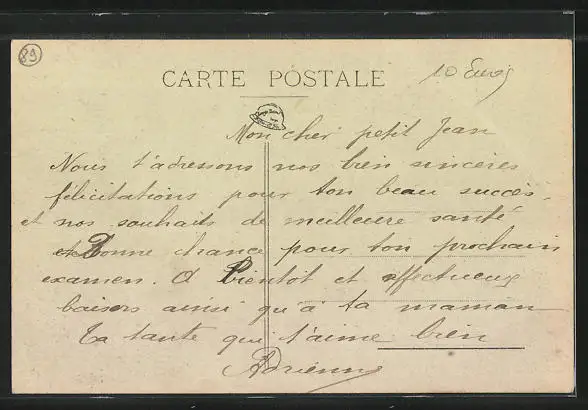 89
CARTE POSTALE
10 Euros
Mon cher petit Jean
Nous t'adressons nos bien sincères
félicitations pour ton beau succès.
et nos souhaits de meilleure santé
et Bonne chance pour ton prochain
examen. A Bientôt et affectueux
baisers ainsi qu'à ta maman
Ta tante qui t'aime bien
Adrienne